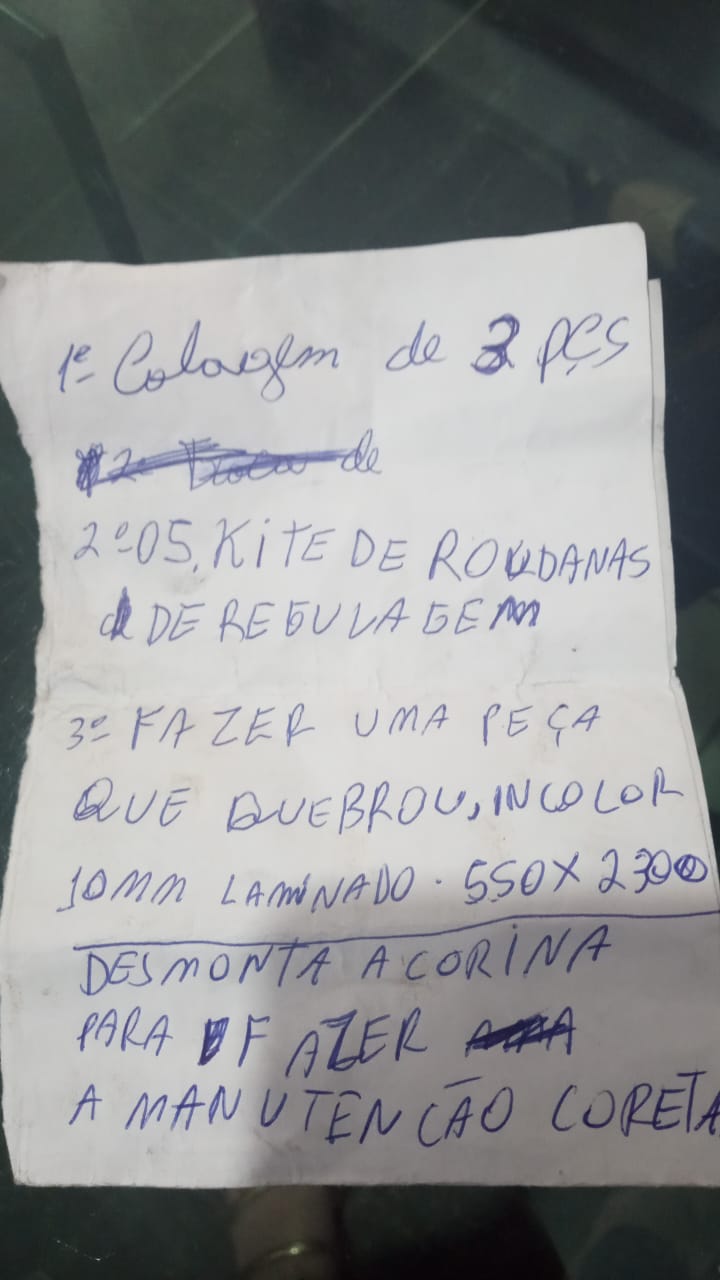 1º Colagem de 3 PÇS
de
2º 05. KITE DE ROUDANAS
DE REGULAGEM
3º FAZER UMA PEÇA
QUE QUEBROU, INCOLOR
10MM LAMINADO. 550X2300
DESMONTA A CORINA
PARA FAZER
A MANUTENCÃO CORETA